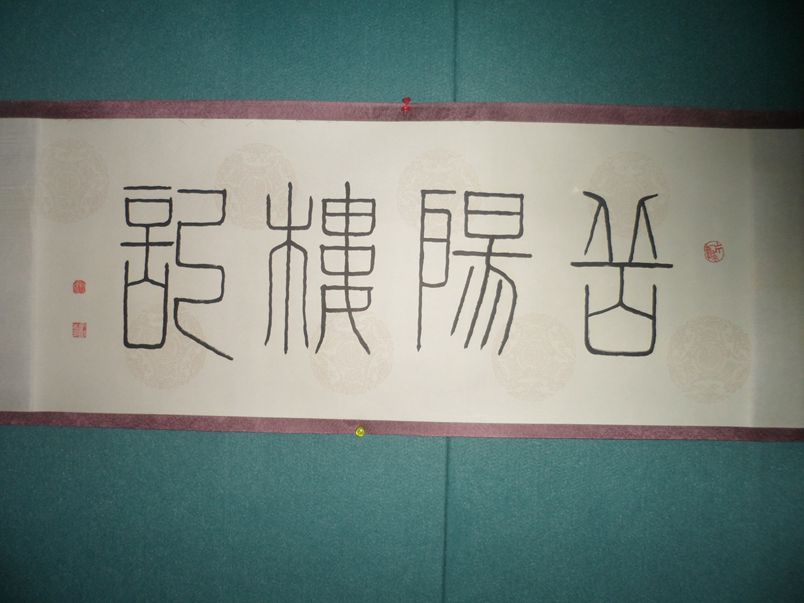 岳陽樓記